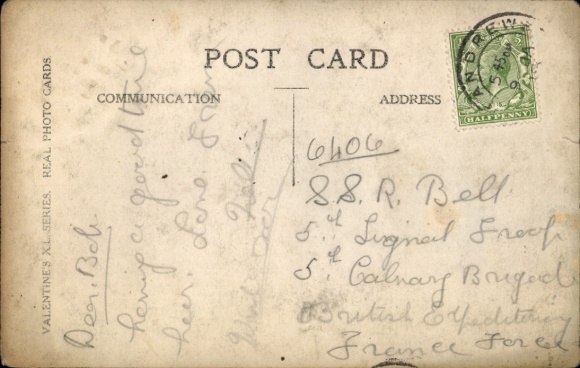 POST CARD
COMMUNICATION
ADDRESS
VALENTINE'S XL SERIES. REAL PHOTO CARDS.
ANDREWS
HALFPENNY
Dear Bob.
having a good time
here. Love From
6406
S.S.R. Bell
5th Signal Troop
5th Calvary Brigade
British Expeditiony
France Force